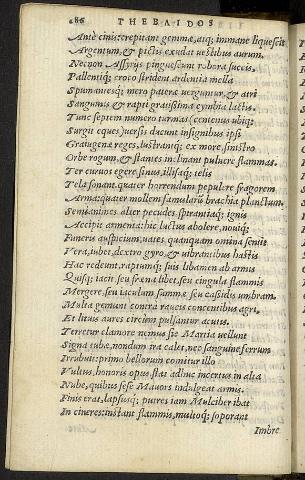 186 THEBAIDOS
Ante cinis: crepitant gemmæ, atq; immane liquescit
Argentum, & pictis exudat uestibus aurum.
Necnon Assyrijs pinguescunt robora succis,
Pallentiq; croco strident ardentia mella
Spumantesq; mero pateræ uerguntur, & atri
Sanguinis & rapti gratissima cymbia lactis.
Tunc septem numero turmas (centenus ubiq;
Surgit eques) uersis ducunt insignibus ipsi
Graiugenæ reges, lustrantq; ex more, sinistro
Orbe rogum, & stantes inclinant puluere flammas.
Ter curuos egere sinus, illisaq; telis
Tela sonant. quater horrendum pepulere fragorem
Arma: quater mollem famularum brachia planctum.
Semianimes alter pecudes, spirantiaq; ignis
Accipit armenta: hic luctus abolere, nouiq;
Funeris auspicium, uates quanquam omina sentit
Vera, iubet, dextro gyro, & uibrantibus hastis
Hac redeunt, raptumq; suis libamen ab armis
Quisq; iacit, seu frena libet, seu cingula flammis
Mergere, seu iaculum summæ seu cassidis umbram.
Multa gemunt contra raucis concentibus agri,
Et lituis aures circum pulsantur acutis.
Terretur clamore nemus sic Martia uellunt
Signa tubæ, nondum ira calet, nec sanguine ferrum
Irrubuit: primo bellorum comitur illo
Vultus, honoris opus. stat adhuc incertus in alta
Nube, quibus sese Mauors indulgeat armis.
Finis erat, lapsusq; putres iam Mulciber ibat
In cineres: instant flammis, multoq; soporant
Imbre